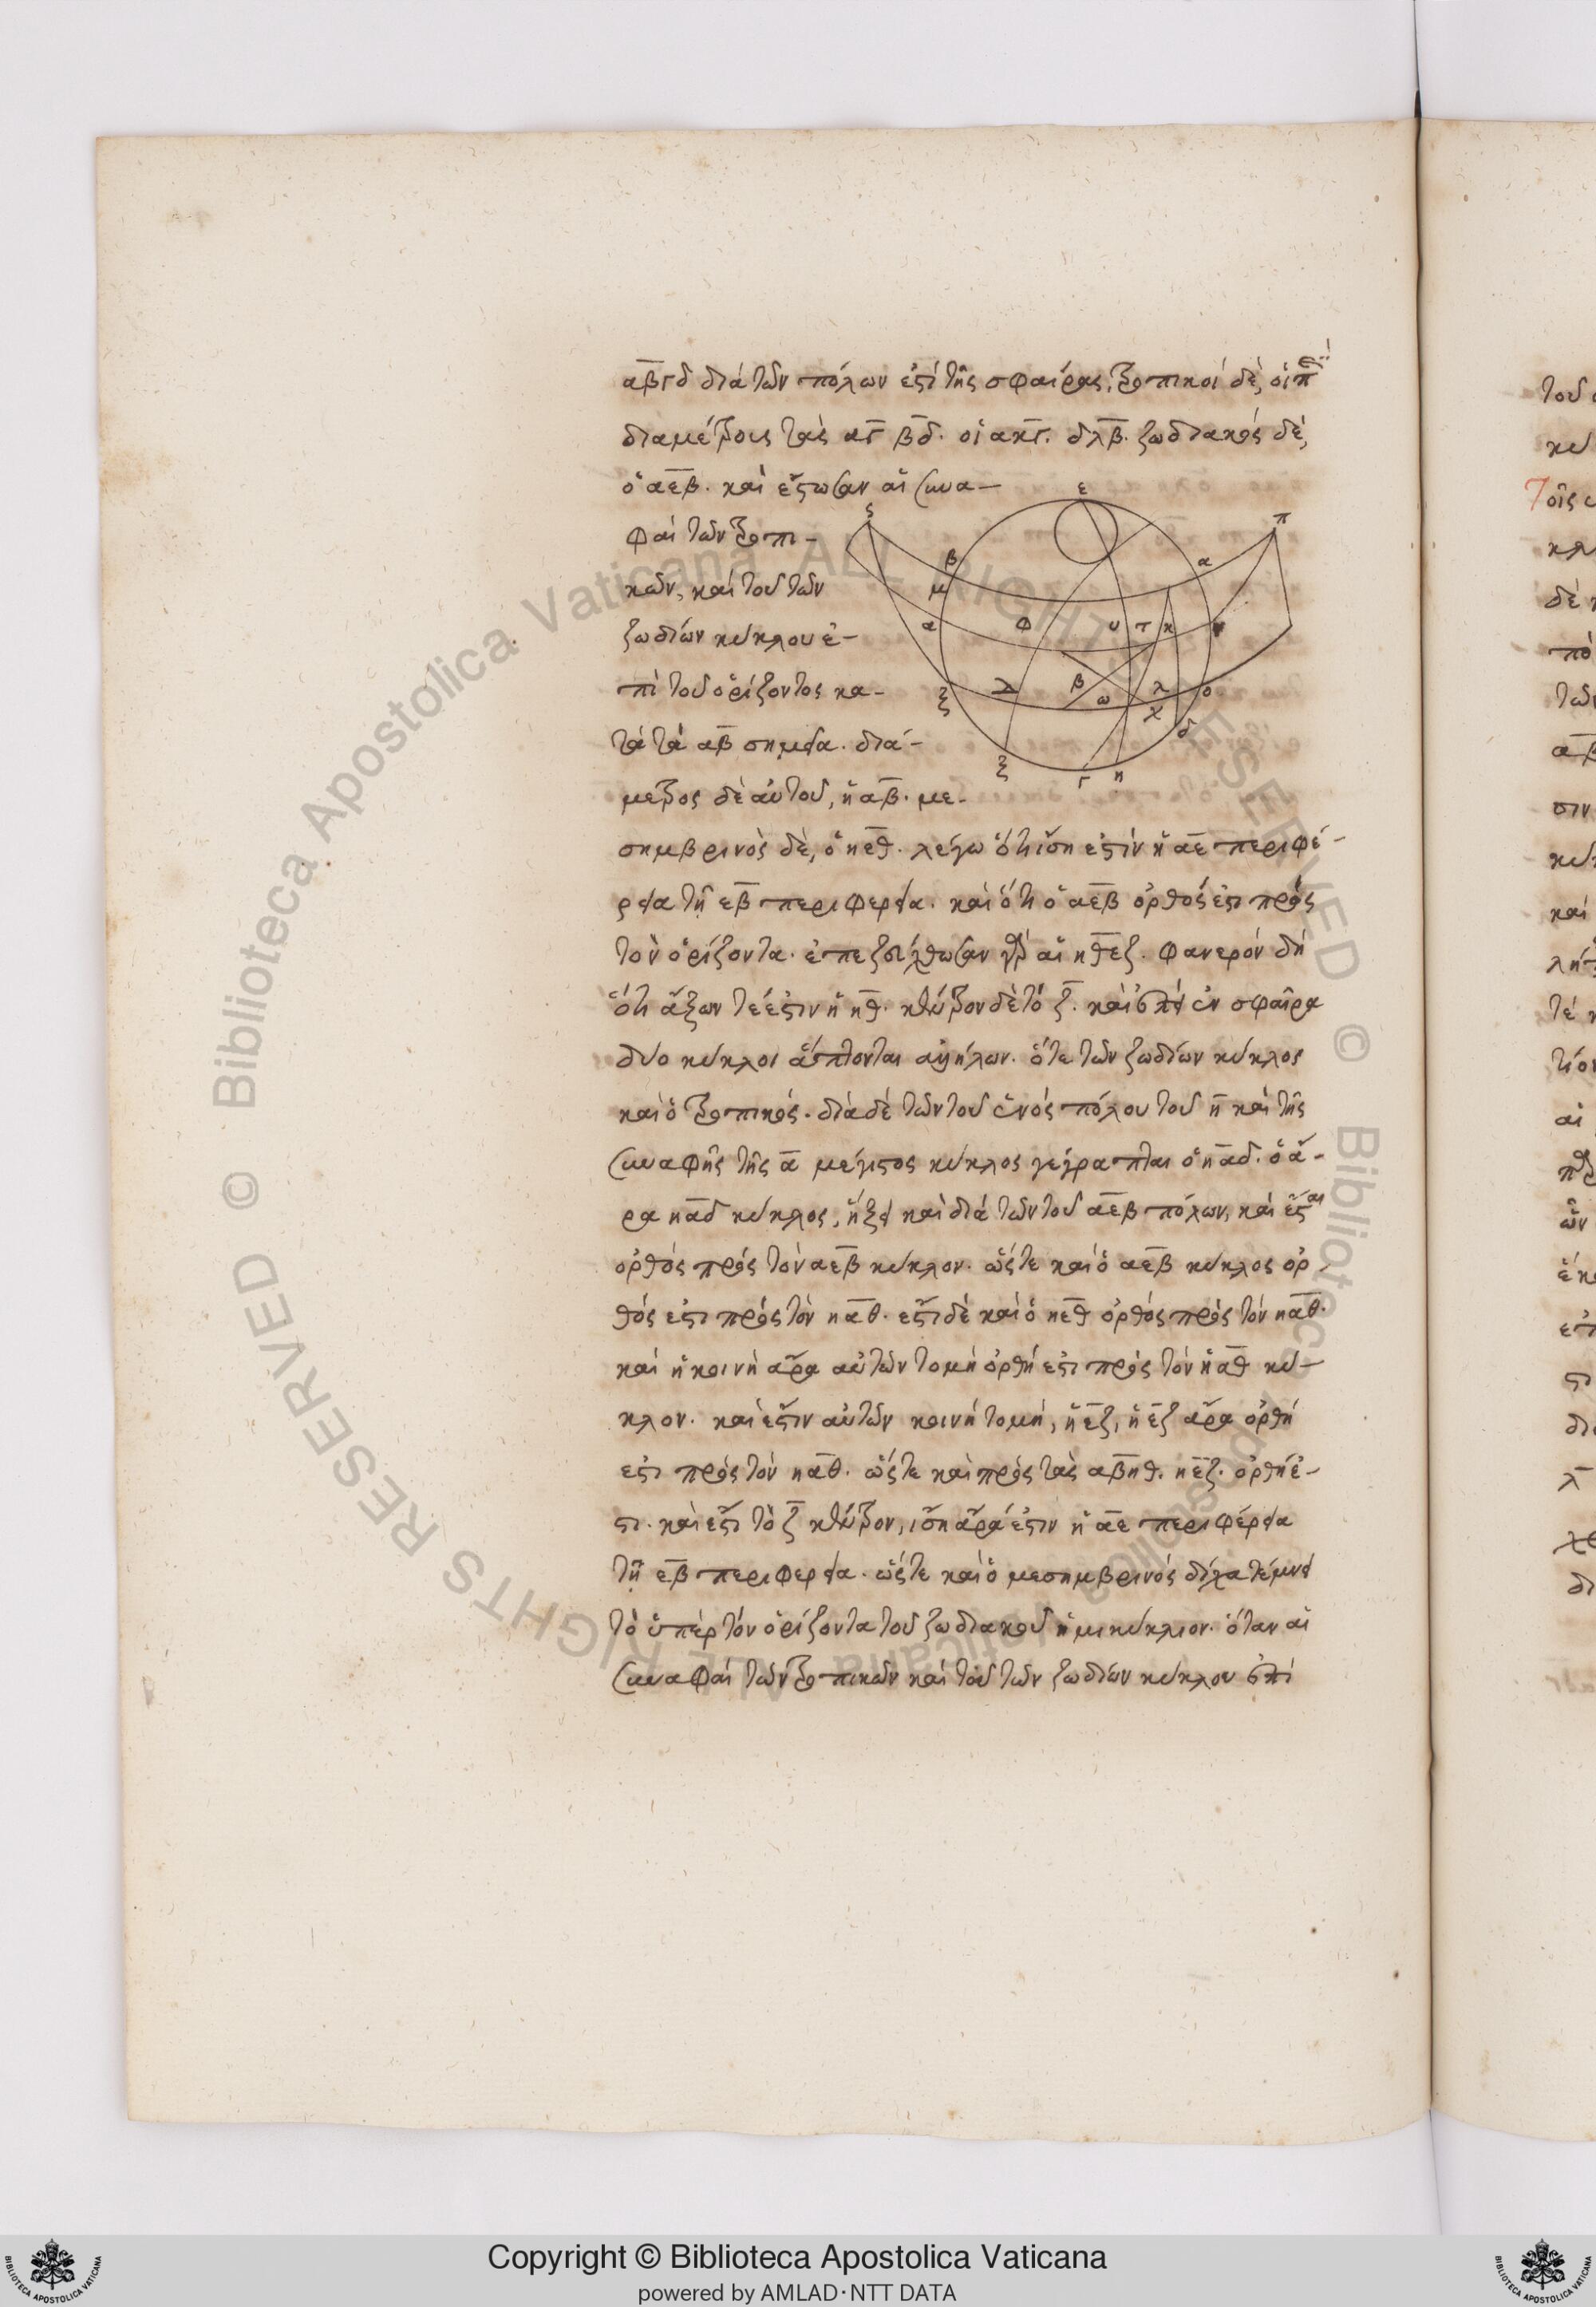 αβγδ διὰ τῶν πόλων ἐστὶ τῆς σφαίρας, τροπικοὶ δὲ, οἱ π
διαμέτρους τὰς αγ βδ. οἱ ακγ. δλβ. ζωδιακὸς δὲ,
ὁ αεβ. καὶ ἔστωσαν αἱ συνα-
φαὶ τῶν τροπι-
κῶν, καὶ τοῦ τῶν
ζωδίων κύκλου ἐ-
πὶ τοῦ ὁρίζοντος κα-
τὰ τὰ αβ σημεῖα. διά-
μετρος δὲ αὐτοῦ, ἡ αβ. με-
σημβρινὸς δὲ, ὁ ηεθ. λέγω ὅτι ἴση ἐστὶν ἡ αε περιφέ-
ρεια τῇ εβ περιφερεία. καὶ ὅτι ὁ αεβ ὀρθός ἐστι πρὸς
τὸν ὁρίζοντα. ἐπεζεύχθωσαν γὰρ αἱ ηθεζ. φανερὸν δὴ
ὅτι ἄξων τέ ἐστιν ἡ ηθ. κέντρον δὲ τὸ ζ. καὶ ἐπεὶ ἐν σφαῖρα
δυο κύκλοι ἅπτονται ἀλλήλων. ὅτε τῶν ζωδίων κύκλος
καὶ ὁ τροπικός. διὰ δὲ τῶν τοῦ ἑνὸς πόλου τοῦ η καὶ τῆς
συναφῆς τῆς α μέγιστος κύκλος γέγραπται ὁ ηαδ. ὁ ἄ-
ρα ηαδ κύκλος, ἥξει καὶ διὰ τῶν τοῦ αεβ πόλων, καὶ ἔσται
ὀρθὸς πρὸς τὸν αεβ κύκλον. ὥστε καὶ ὁ αεβ κύκλος ὀρ-
θός ἐστι πρὸς τὸν ηαθ. ἔστι δὲ καὶ ὁ ηεθ ὀρθὸς πρὸς τὸν ηαθ.
καὶ ἡ κοινὴ ἄρα αὐτῶν τομὴ ὀρθή ἐστι πρὸς τὸν ηαθ κύ-
κλον. καὶ ἔστιν αὐτῶν κοινὴ τομή, ἡ εζ, ἡ εζ ἄρα ὀρθή
ἐστι πρὸς τὸν ηαθ. ὥστε καὶ πρὸς τὰς αβηθ. ηεζ. ὀρθή ἐ-
στι. καὶ ἔστι τὸ ζ κέντρον, ἴση ἄρα ἐστιν ἡ αε περιφέρεια
τῇ εβ περιφερεία. ὥστε καὶ ὁ μεσημβρινὸς δίχα τέμνει
τὸ ὑπὲρ τὸν ὁρίζοντα τοῦ ζωδιακοῦ ἡμικύκλιον. ὅταν αἱ
συναφαὶ τῶν τροπικῶν καὶ τοῦ τῶν ζωδίων κύκλου ἐπὶ
Copyright © Biblioteca Apostolica Vaticana
powered by AMLAD·NTT DATA